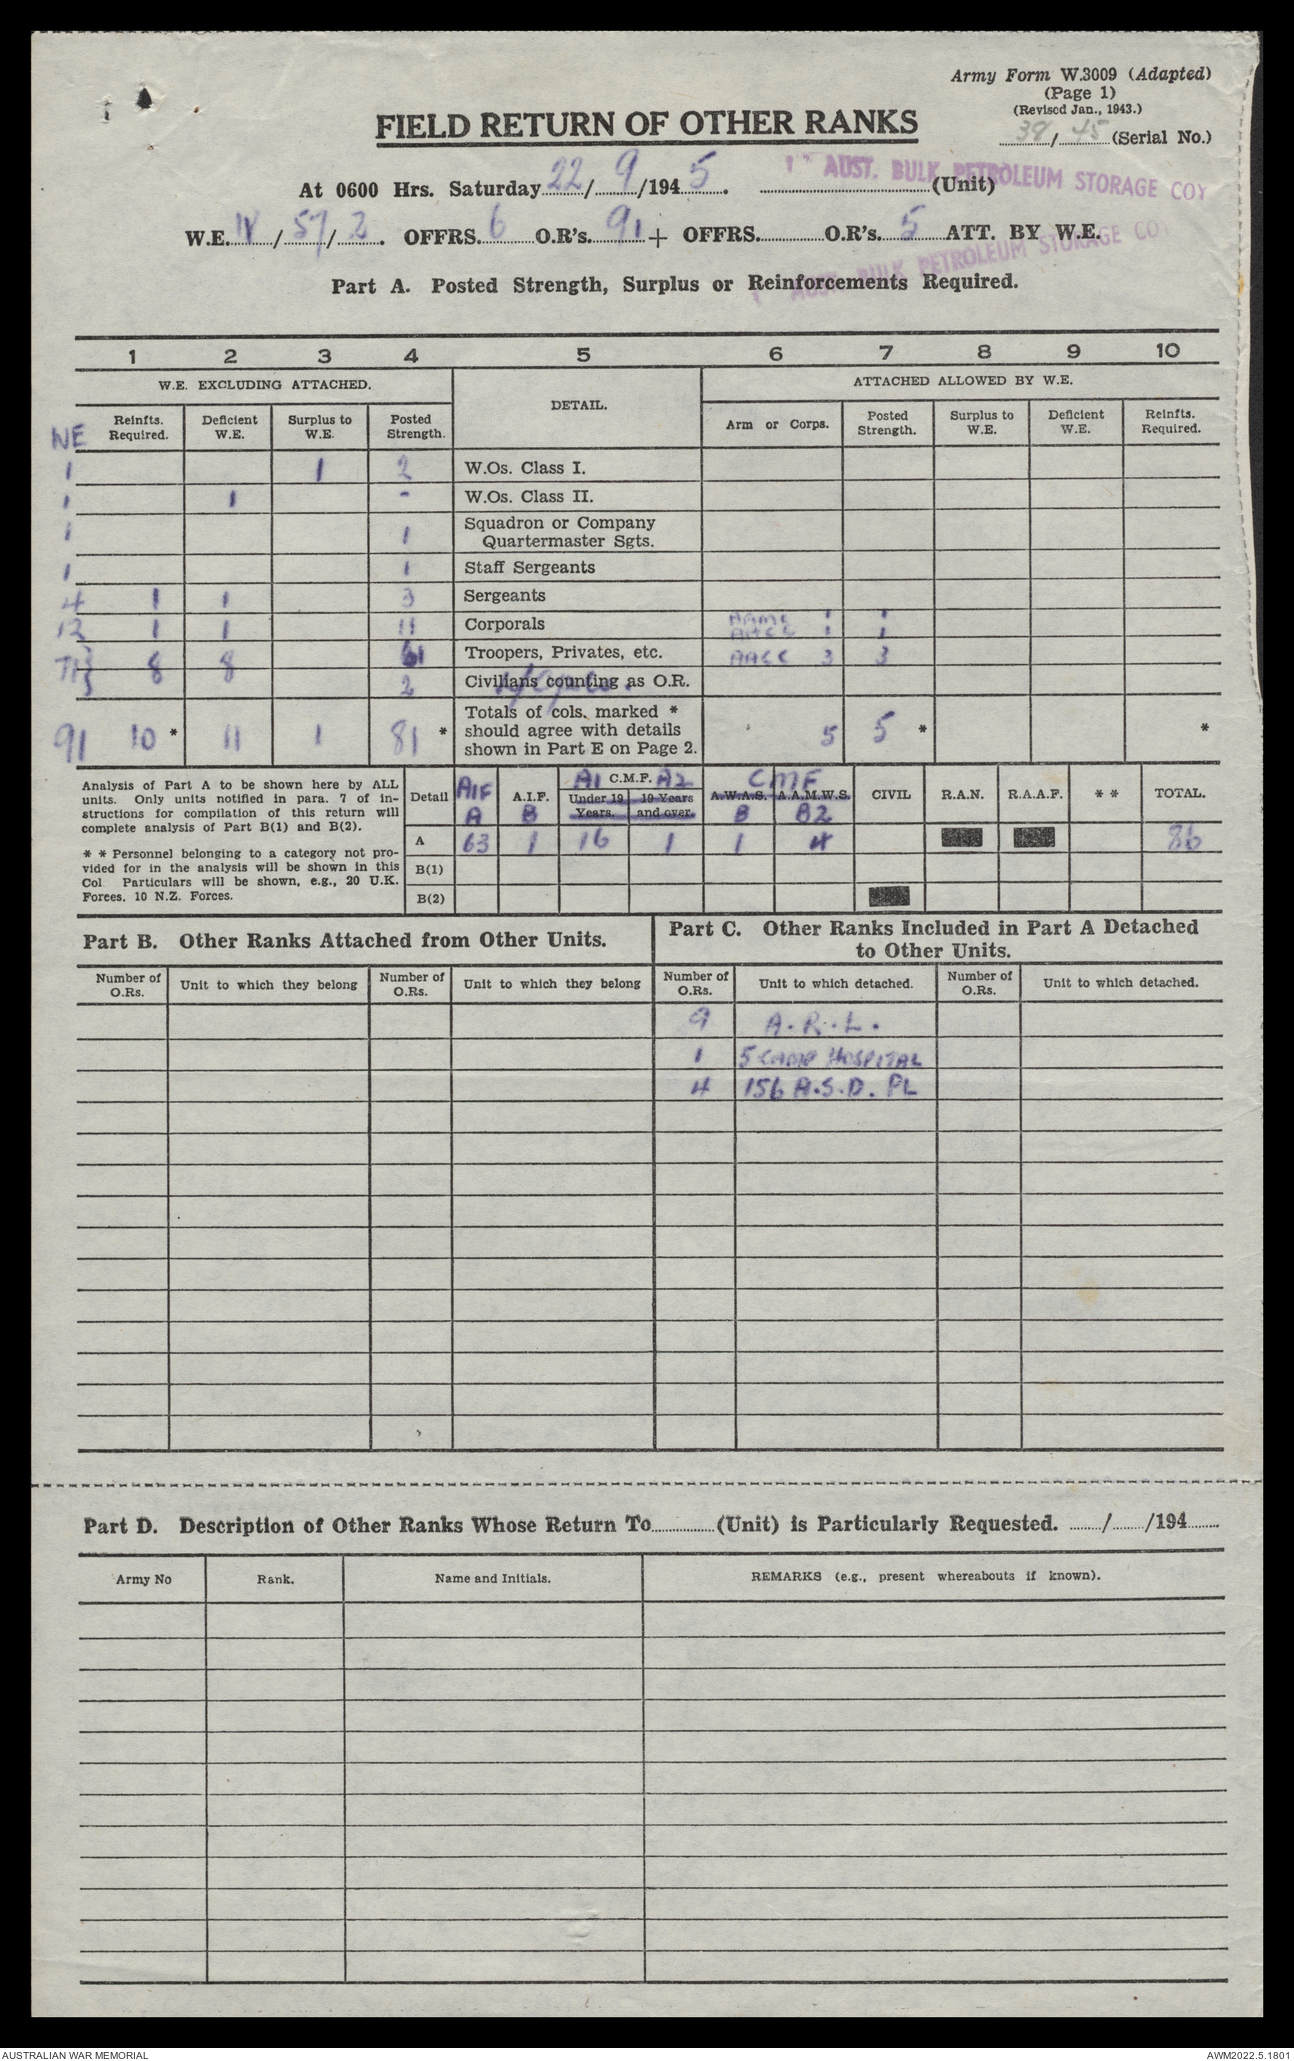 Army Form W.3009 (Adapted)
(Page 1)
(Revised Jan., 1943.)
38/45 (Serial No.)
FIELD RETURN OF OTHER RANKS
At 0600 Hrs. Saturday 22/9/1945. 1 AUST. BULK PETROLEUM STORAGE COY (Unit)
W.E. IV/57/2. OFFRS. 6 O.R's. 91 + OFFRS. O.R's. 5 ATT. BY W.E.
1 AUST. BULK PETROLEUM STORAGE COY
Part A. Posted Strength, Surplus or Reinforcements Required.
1 2 3 4 5 6 7 8 9 10
W.E. EXCLUDING ATTACHED. DETAIL. ATTACHED ALLOWED BY W.E.
NE Reinfts. Required. Deficient W.E. Surplus to W.E. Posted Strength. Arm or Corps. Posted Strength. Surplus to W.E. Deficient W.E. Reinfts. Required.
1 1 2 W.Os. Class I.
1 1 - W.Os. Class II.
1 1 Squadron or Company Quartermaster Sgts.
1 1 Staff Sergeants
4 1 1 3 Sergeants
12 1 1 11 Corporals AAMC 1 1
AACC 1 1
71 8 8 61 Troopers, Privates, etc. AACC 3 3
2 Civilians counting as O.R.
91 10 * 11 1 81 * Totals of cols. marked * should agree with details shown in Part E on Page 2. 5 5 * *
Analysis of Part A to be shown here by ALL
units. Only units notified in para. 7 of in-
structions for compilation of this return will
complete analysis of Part B(1) and B(2).
* * Personnel belonging to a category not pro-
vided for in the analysis will be shown in this
Col Particulars will be shown, e.g., 20 U.K.
Forces, 10 N.Z. Forces.
Detail AIF A A.I.F. B A1 C.M.F. A2 Under 19 Years. 19 Years and over. CMF A.W.A.S. B A.A.M.W.S. B2 CIVIL R.A.N. R.A.A.F. * * TOTAL.
A 63 1 16 1 1 4 86
B(1)
B(2)
Part B. Other Ranks Attached from Other Units.
Part C. Other Ranks Included in Part A Detached
to Other Units.
Number of O.Rs. Unit to which they belong Number of O.Rs. Unit to which they belong Number of O.Rs. Unit to which detached. Number of O.Rs. Unit to which detached.
9 A.R.L.
1 5 CAMP HOSPITAL
4 156 A.S.D. PL
Part D. Description of Other Ranks Whose Return To (Unit) is Particularly Requested. / /194
Army No Rank. Name and Initials. REMARKS (e.g., present whereabouts if known).
AUSTRALIAN WAR MEMORIAL AWM2022.5.1801